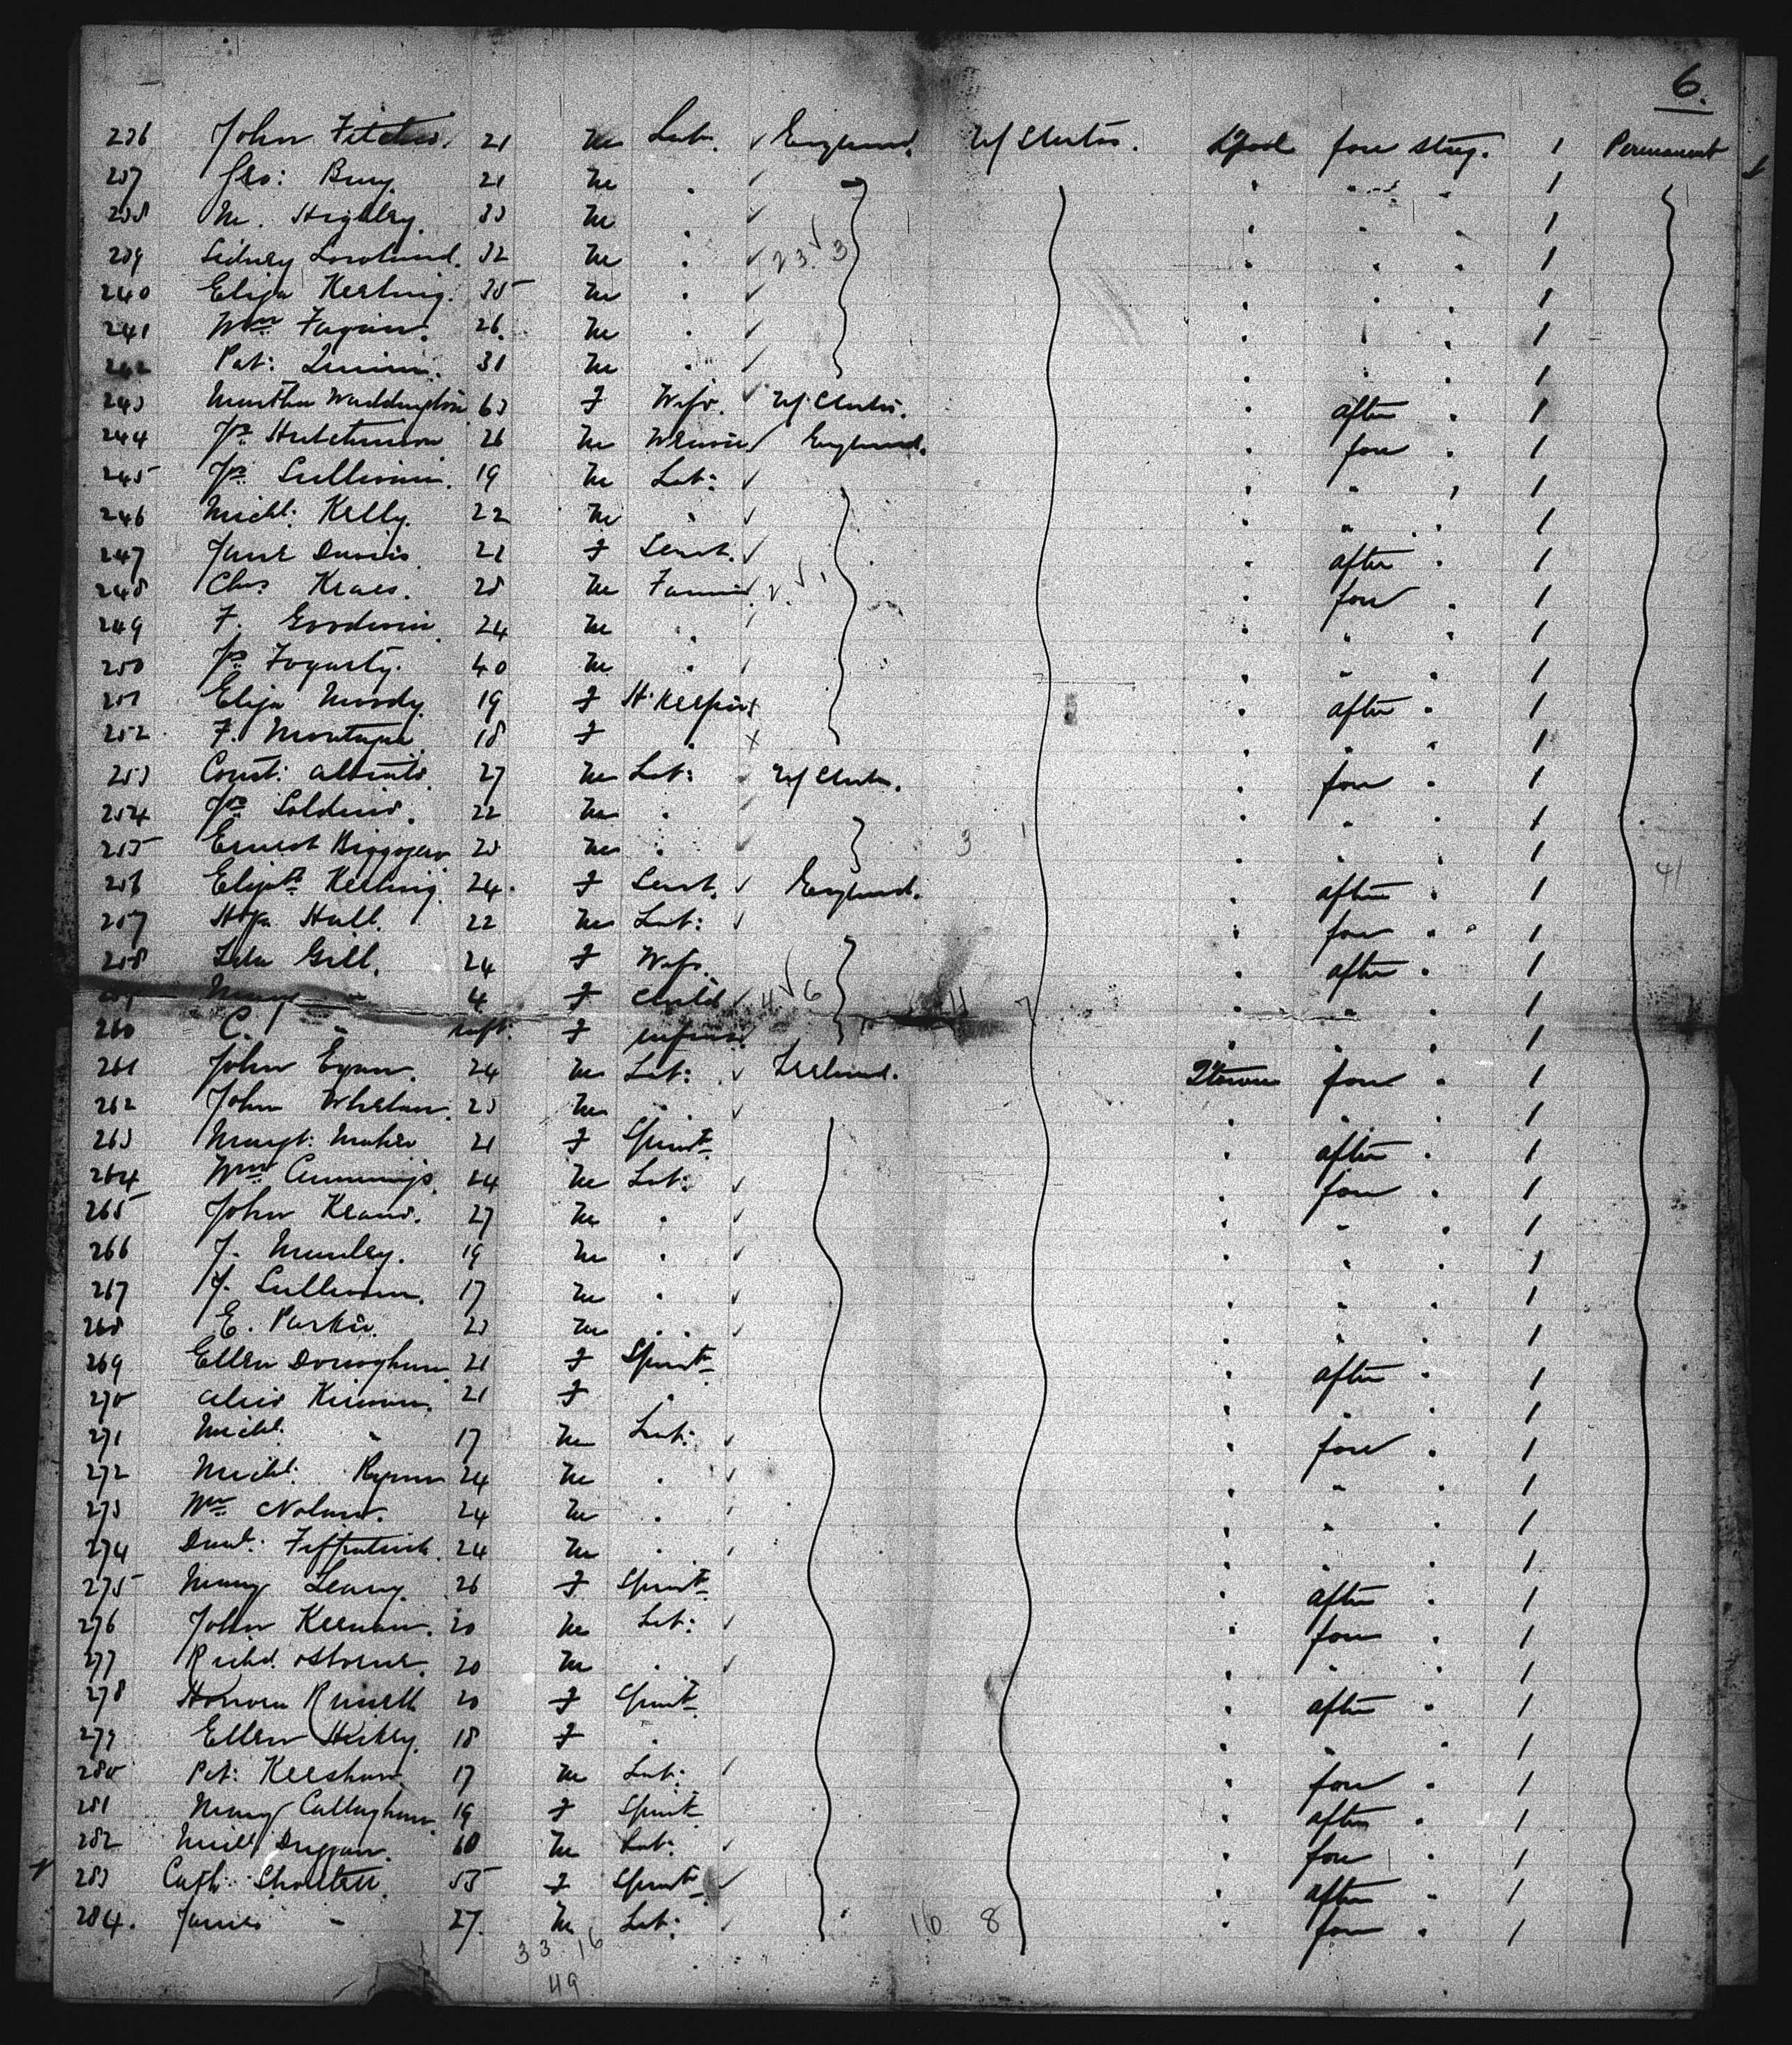 6.
236 John 21 M Lab. England. U/ States. L'pool fore strg. 1 Permanent
237 Geo: Bury. 21 M " " " " 1
238 M. Higbley. 33 M " " " " 1
239 Sidney Lowland. 32 M " 23 3 " " " 1
240 Elija Kerling. 35 M " " " " 1
241 Wm Fagan. 26. M " " " " 1
242 Pat: Quinn. 31 M " " " " 1
243 Martha Waddington 63 F Wife. U/ States. " after " 1
244 Jno Hutchinson 26 M England. " fore " 1
245 Jno Sullivan. 19 M Lab: " " " 1
246 Michl: Kelly. 22 M " " " " 1
247 Jane Davis. 21 F Servt. " after " 1
248 Chas Kraes. 28 M Farmer. " fore " 1
249 F. Goodwin. 24 M " " " " 1
250 Jno Fogarty. 40 M " " " " 1
251 Eliza Moody. 19 F H. Keeper " after " 1
252 F. Montague. 18 F " " " " 1
253 Const: 27 M Lab: U/ States. " fore " 1
254 Jno 22 M " " " " 1
255 Ernest 23 M " 3 1 " " " 1
256 Elizth Kerling. 24. F Servt. England. " after " 1 41
257 Hall. 22 M Lab: " fore " 1
258 Ida Gill. 24 F Wife. " after " 1
259 Mary " 4 F Child 4 6 11 7 " " " 1
260 C. " Inft. F infant. " " " 1
261 John Egan. 24 M Lab: Ireland. Qtown fore " 1
262 John Whelan. 23 M " " " " 1
263 Margt: Maher 21 F Spinst " after " 1
264 Wm Cummings. 24 M Lab: " fore " 1
265 John Keane. 27 M " " " " 1
266 J. Manley. 19 M " " " " 1
267 J. Sullivan. 17 M " " " " 1
268 E. Parker. 23 M " " " " 1
269 Ellen Donoghue 21 F Spinst " after " 1
270 Alice Kirwan. 21 F " " " " 1
271 Michl: " 17 M Lab: " fore " 1
272 Michl: Ryan 24 M " " " " 1
273 Wm Nolan. 24 M " " " " 1
274 Danl: Fitzpatrick. 24 M " " " " 1
275 Mary Leary. 26 F Spinst " after " 1
276 John Keenan. 20 M Lab: " fore " 1
277 Richd. 20 M " " " " 1
278 Honora Russell 20 F Spinst " after " 1
279 Ellen Hickey. 18 F " " " " 1
280 Pat: Keeshan. 17 M Lab: " fore " 1
281 Mary Callaghan. 19 F Spinst " after " 1
282 Michl Duggan. 60 M Lab: " fore " 1
283 Cath: 55 F Spinst " after " 1
284. James " 27. M Lab: 16 8 " fore " 1
33 16
49